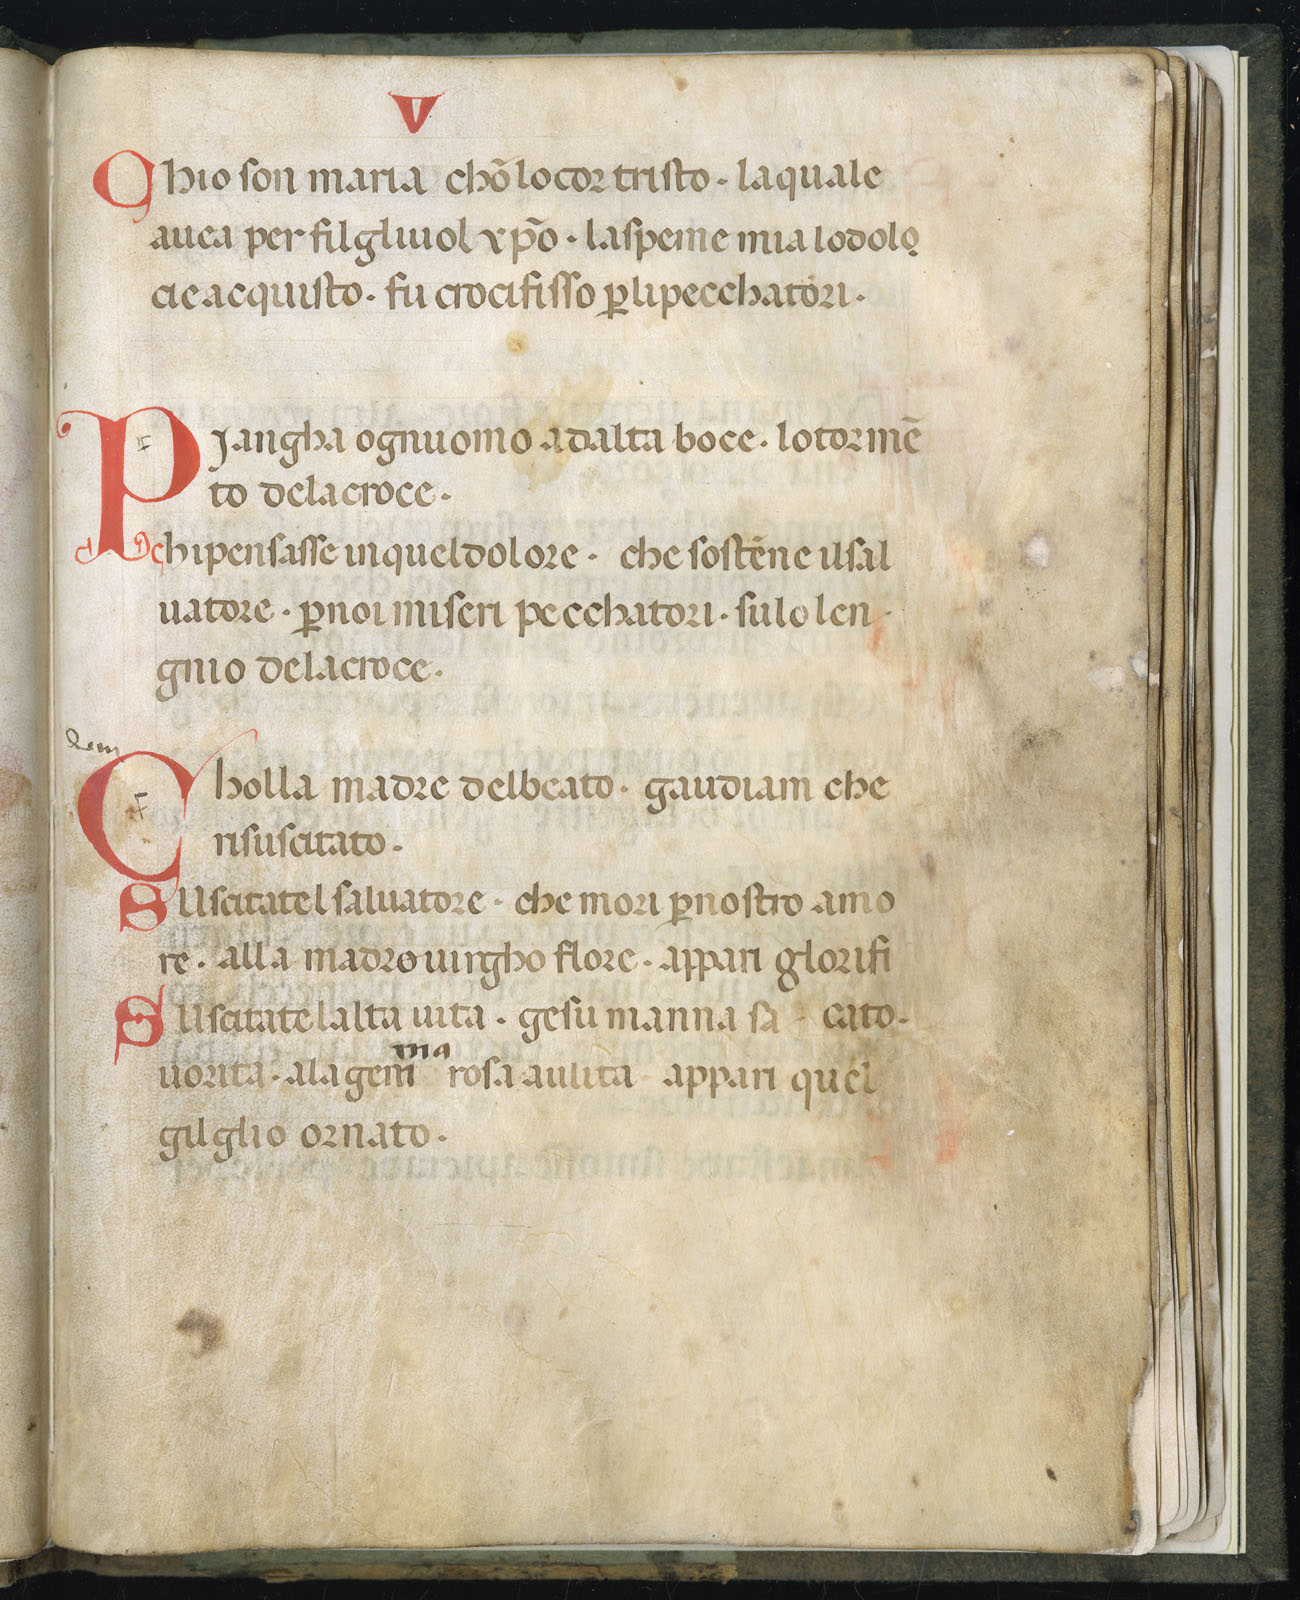 V
Ghio son maria chō lo cor tristo · la quale
auea per filgliuol xp̄o · la speme mia lo dolo
cie acquisto · fu crocifisso ꝑ li pecchatori ·
Piangha ogn uomo ad alta boce · lo tormē
to de la croce ·
chi pensasse in quel dolore · che sostēne il sal
uatore · ꝑ noi miseri pecchatori · su lo len
gnio de la croce ·
Cholla madre del beato · gaudiam che
risuscitato ·
Suscitatel saluatore · che mori ꝑ nostro amo
re · alla madre uirgho flore · appari glorifi
Suscitatel alta uita · gesu manna sa cato ·
ma
uorita · a la gem̄ rosa aulita appari quel
gilglio ornato ·